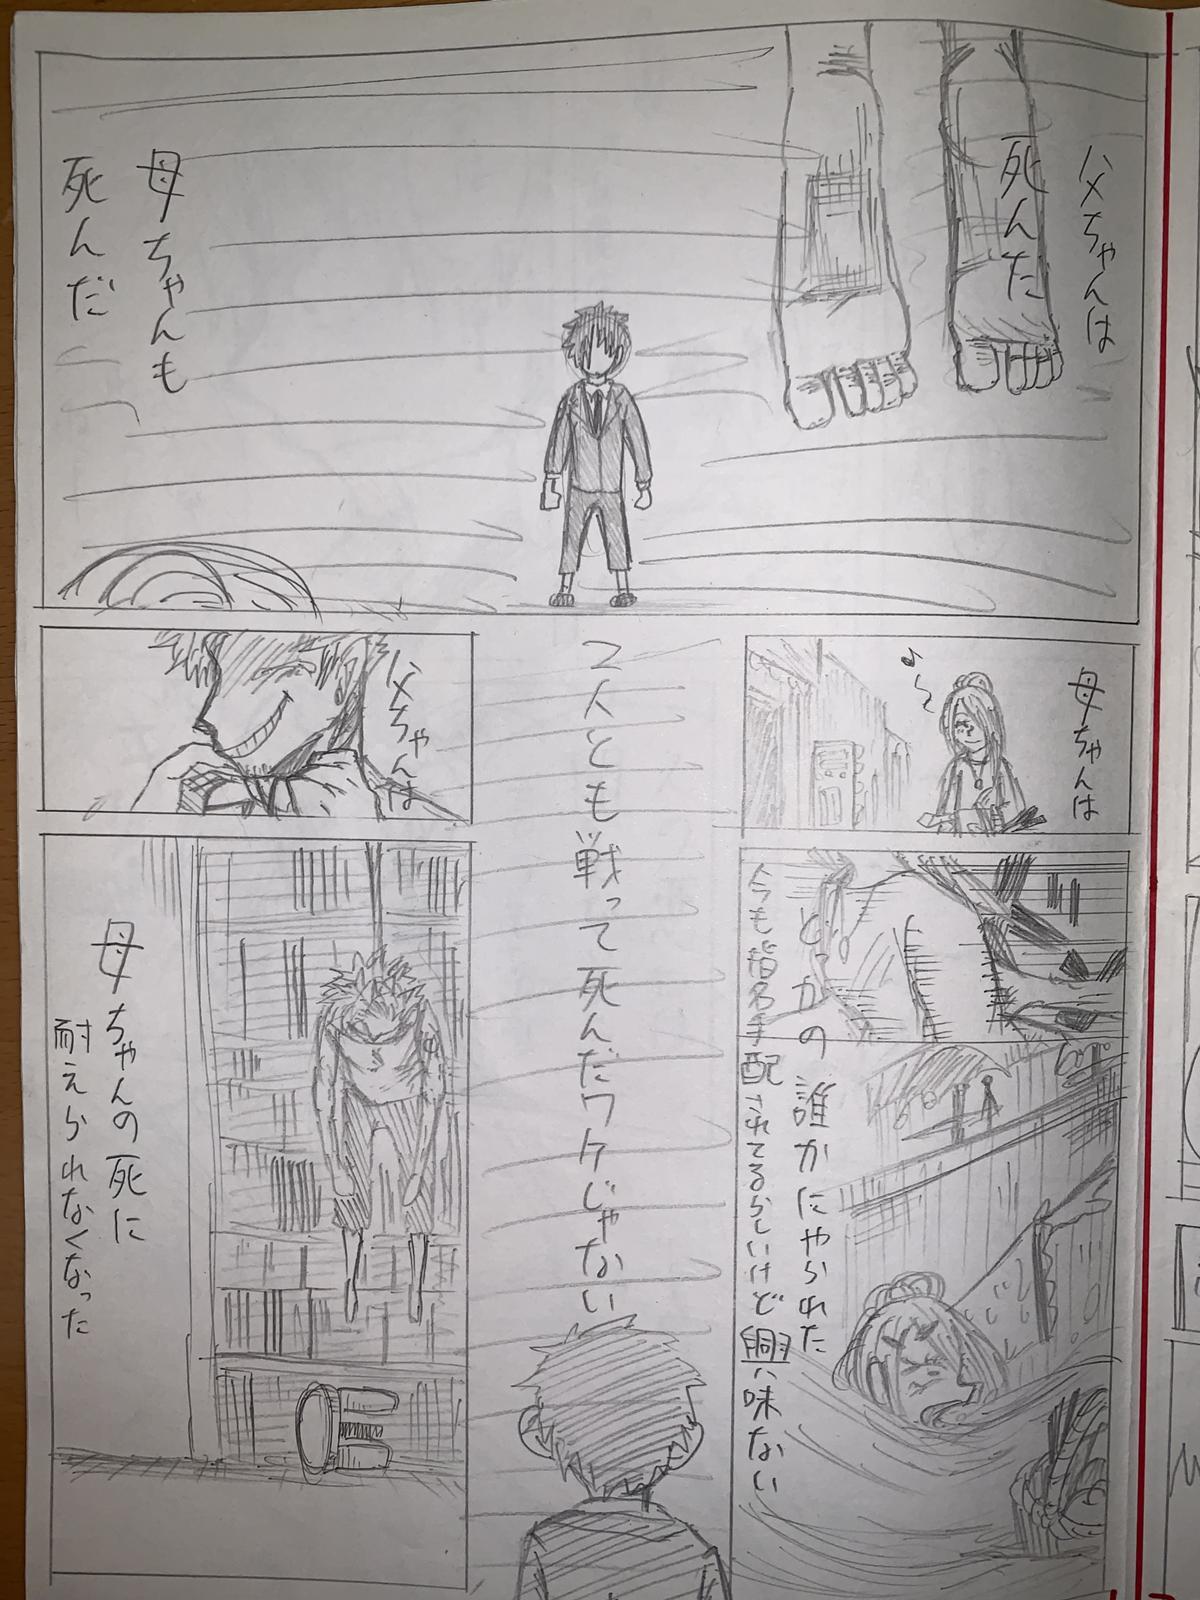 父ちゃんは
死んだ
母ちゃんも
死んだ
母ちゃんは
どっかの誰かにやられた
今も指名手配されてるらしいけど
味ない
2人とも戦って死んだワケじゃない
父ちゃんは
母ちゃんの死に
耐えられなくなった